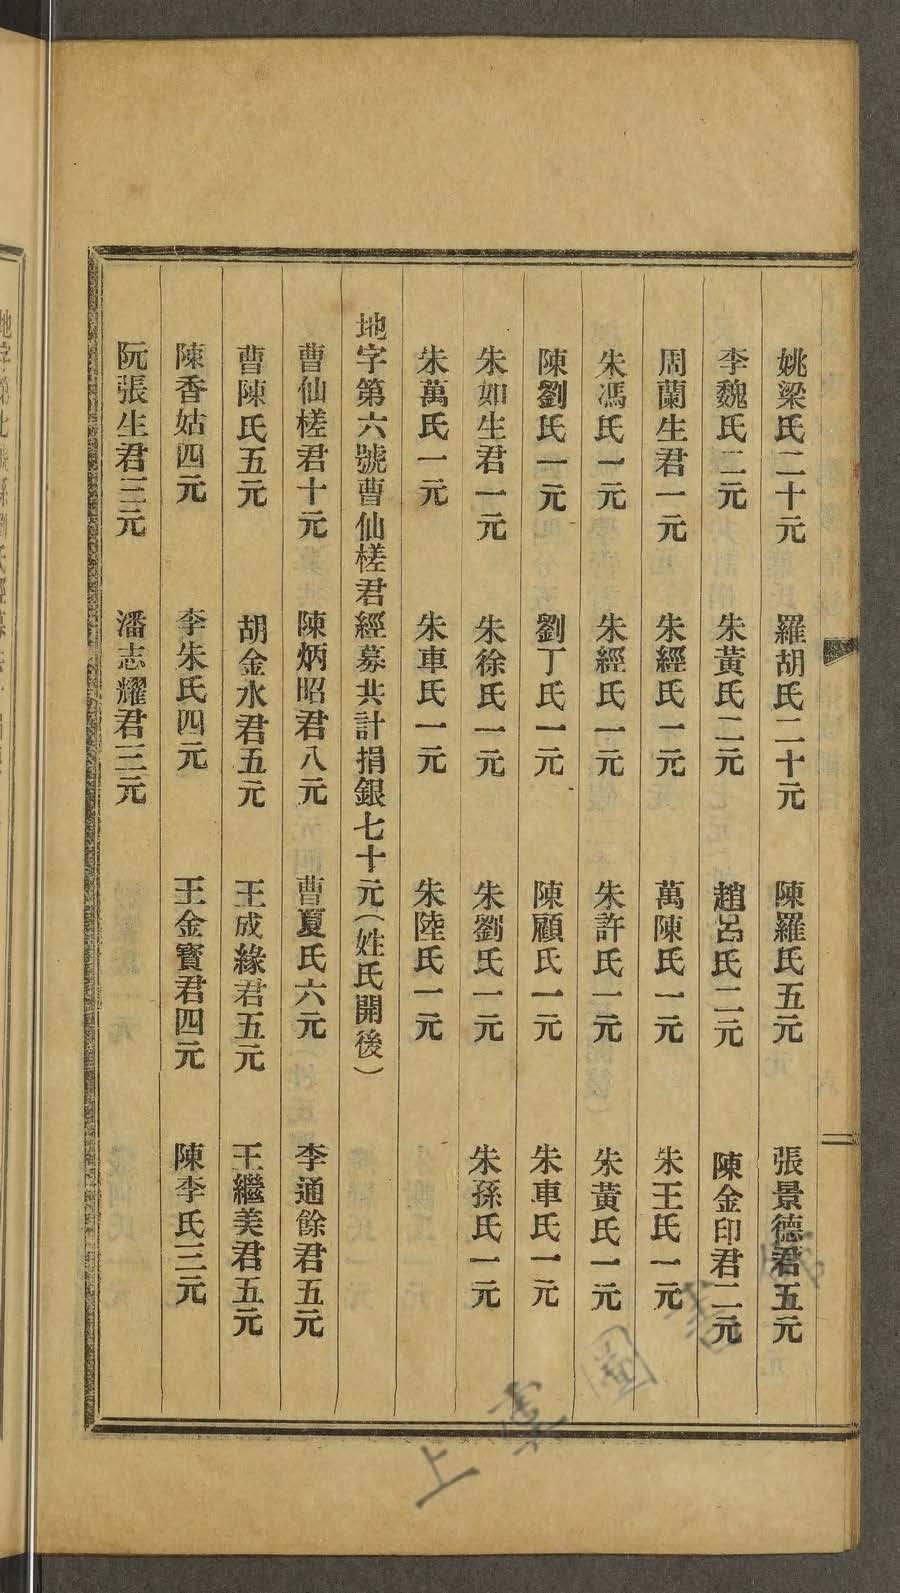 姚梁氏二十元　羅胡氏二十元　陳羅氏五元　張景德君五元
李魏氏二元　朱黃氏二元　趙呂氏二元　陳金印君二元
周蘭生君一元　朱經氏一元　萬陳氏一元　朱王氏一元
朱馮氏一元　朱經氏一元　朱許氏一元　朱黃氏一元
陳劉氏一元　劉丁氏一元　陳顧氏一元　朱車氏一元
朱如生君一元　朱徐氏一元　朱劉氏一元　朱孫氏一元
朱萬氏一元　朱車氏一元　朱陸氏一元
地字第六號曹仙槎君經募共計捐銀七十元（姓氏開後）
曹仙槎君十元　陳炳昭君八元　曹夏氏六元　李通餘君五元
曹陳氏五元　胡金水君五元　王成緣君五元　王繼美君五元
陳香姑四元　李朱氏四元　王金寶君四元　陳李氏三元
阮張生君三元　潘志耀君三元
上虞圖書館